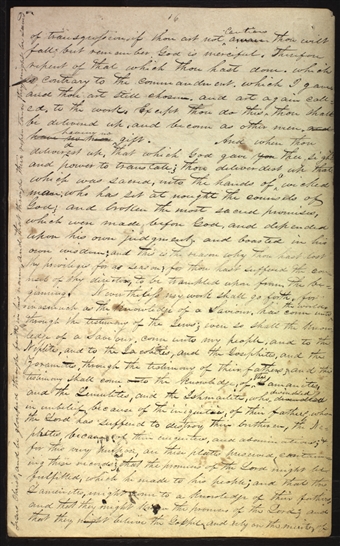 16
of transgression if thou art not cautious thou wilt
fall but remember God is merciful. Therefore
repent of that which thou hast done which
is contrary to the commandment, which I gave
and thou art still chosen, and art again cal-
ed, to the work, Except thou do this, thou shall
be delivered up, and become as other men, and
have no gift. And when thou
deliveredst up, that which God gave thee sight
and power to translate; thou deliveredst up that
which was sacred, into the hands of, wicked
man, who has set at nought the counsels of
God; and broken the most sacred promises,
which were made before God, and depended
upon his own judgments and boasted in his
own wisdom, and this is the reason why thou hast lost
thy privileges for a season; for thou hast suffered the coun-
sels of thy director, to be trampled upon from the be-
ginning. Nevertheless my work shall go forth, for
inasmuch as the knowledge of a Saviour, has come into the world
through the testimony of the Jews; even so shall the knowl-
edge of a Saviour, come unto my people, and to the
Nephites, and to the Jacobites, and the Josephites, and the
Zoramites, through the testimony of their fathers; and this
testimony shall come to the knowledge of the Lamanites,
and the Lemuelites, and the Ishmaelites, who dwindled
in unbelief because of the iniquities, of their father, whom
the Lord has suffered to destroy their brethren, the Ne-
phites, because of their iniquities, and abominations; &
for this very purpose, are these plates preserved, contain-
ing these records; that the promises of the Lord might be
fulfilled, which he made to his people; and that the
Lamanites, might come to a knowledge of their fathers
and that they might know the promises of the Lord; and
that they might believe the Gospel and rely on the merits, of